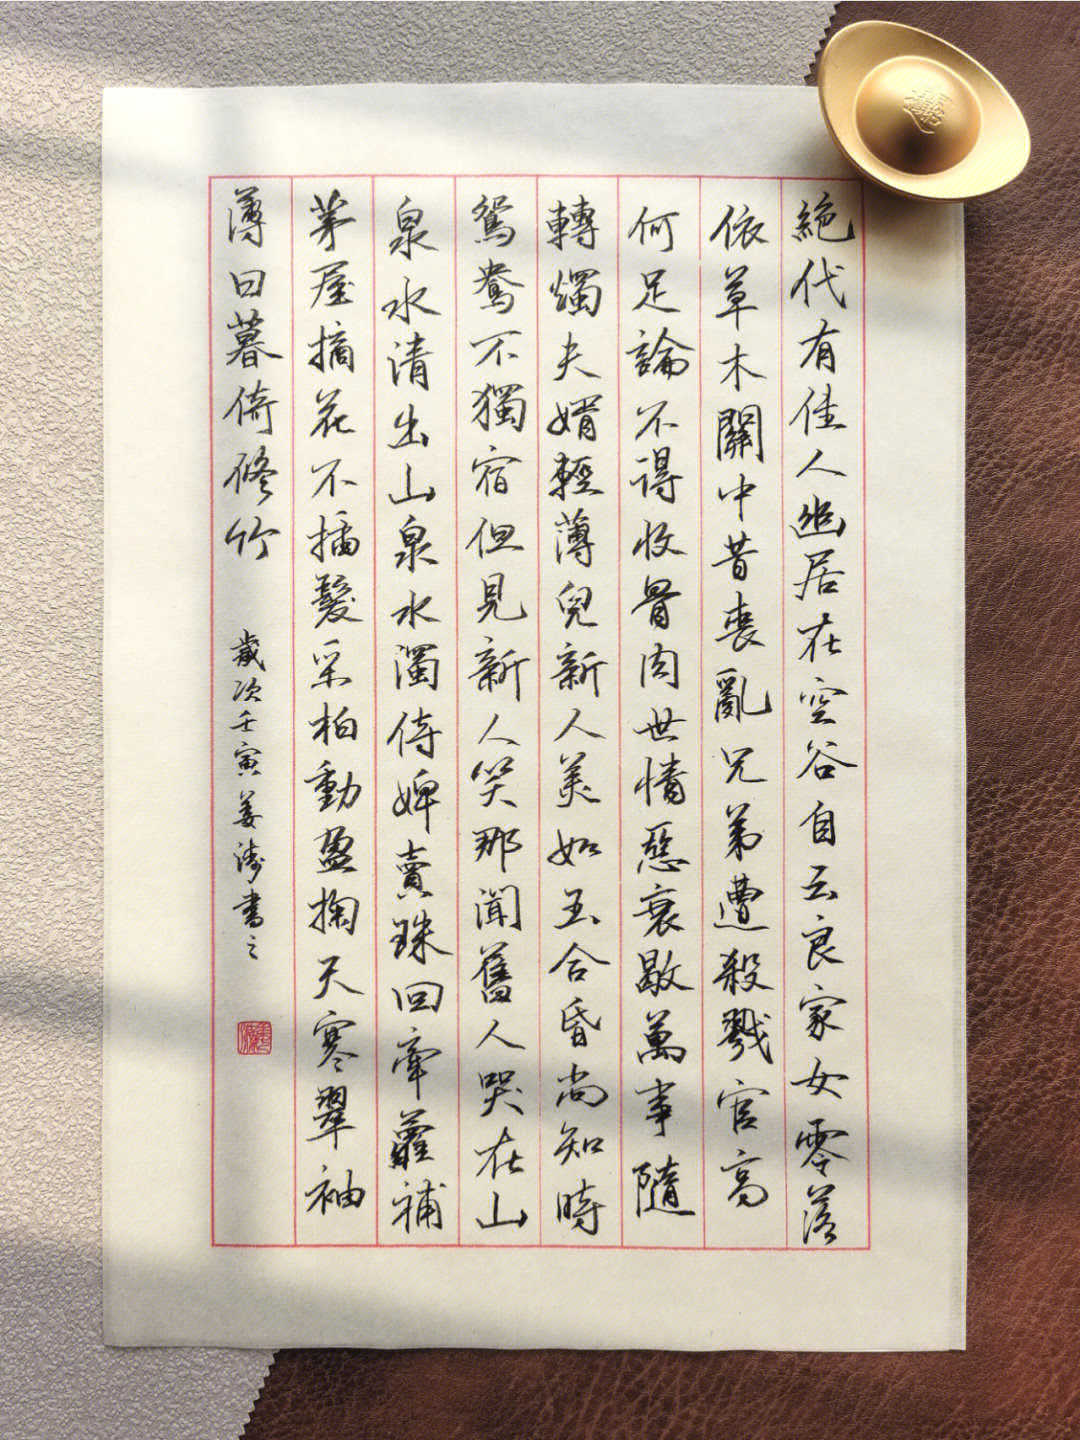 絶代有佳人幽居在空谷自云良家女零落
依草木關中昔喪亂兄弟遭殺戮官高
何足論不得收骨肉世情惡衰歇萬事隨
轉燭夫婿輕薄兒新人美如玉合昏尚知時
鴛鴦不獨宿但見新人笑那聞舊人哭在山
泉水清出山泉水濁侍婢賣珠回牽蘿補
茅屋摘花不插髮采柏動盈掬天寒翠袖
薄日暮倚修竹
歲次壬寅姜濤書之